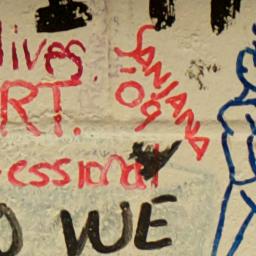 lives.
SANJANA
'09
RT.
essional
WE